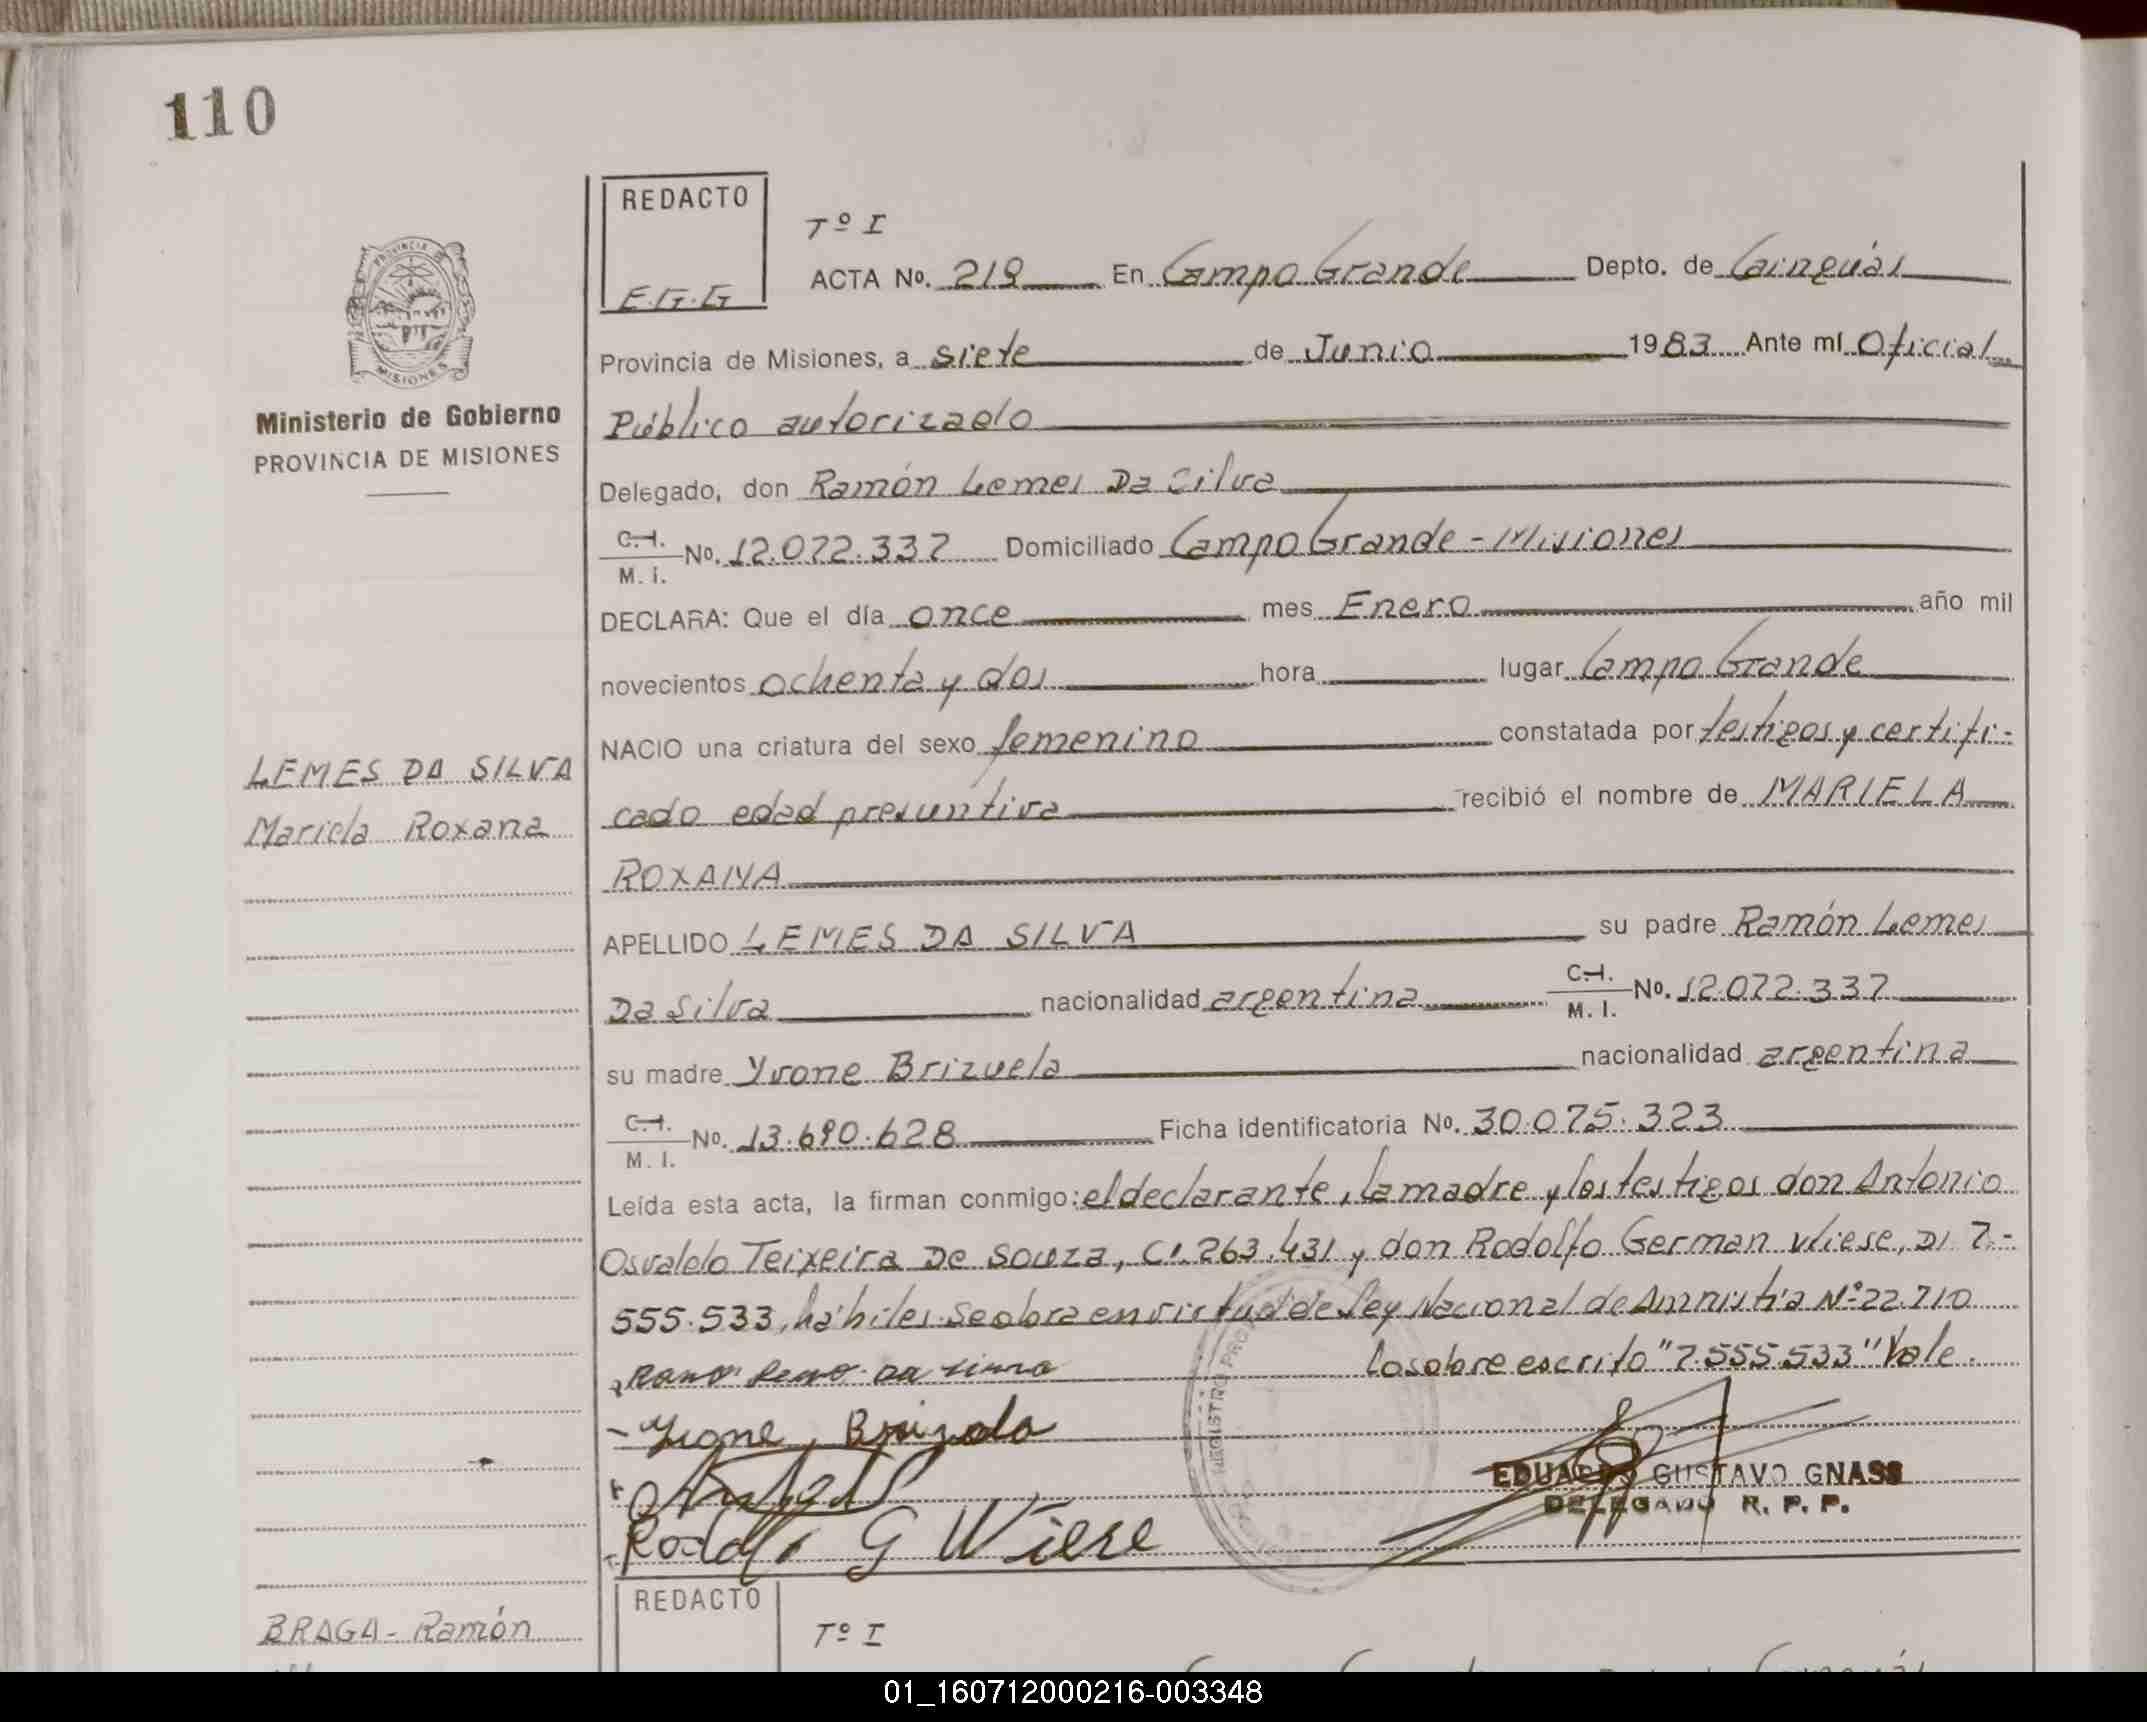 110
REDACTO
E.G.G
Tº I
ACTA No. 219 En Campo Grande Depto. de Cainguás
Provincia de Misiones, a siete de Junio 1983 Ante mí Oficial
Público autorizado
Delegado, don Ramón Lemes Da Silva
C.I. M. i. No. 12.072.337 Domiciliado Campo Grande - Misiones
DECLARA: Que el día once mes Enero año mil
novecientos ochenta y dos hora lugar Campo Grande
NACIO una criatura del sexo femenino constatada por testigos y certifi-
cado edad presuntiva recibió el nombre de MARIELA
ROXANA
APELLIDO LEMES DA SILVA su padre Ramón Lemes
Da Silva nacionalidad argentina C.I. M. I. No. 12.072.337
su madre Yvone Brizuela nacionalidad argentina
C.I. M. I. No. 13.690.628 Ficha identificatoria No. 30.075.323
Leída esta acta, la firman conmigo: el declarante, la madre y los testigos don Antonio
Osvaldo Teixeira De Souza, CI. 263.431 y don Rodolfo German Wiese, DI 7.-
555.533, hábiles. Se labra en virtud de Ley Nacional de Amnistía Nº 22.710
Lo sobre escrito "7.555.533" Vale.
Brizola
EDUARDO GUSTAVO GNASS
DELEGADO R. P. P.
Rodolfo G Wiese
PROVINCIA DE
MISIONES
Ministerio de Gobierno
PROVINCIA DE MISIONES
LEMES DA SILVA
Mariela Roxana
REGISTRO PRO
BRAGA - Ramón
REDACTO
Tº I
01_160712000216-003348